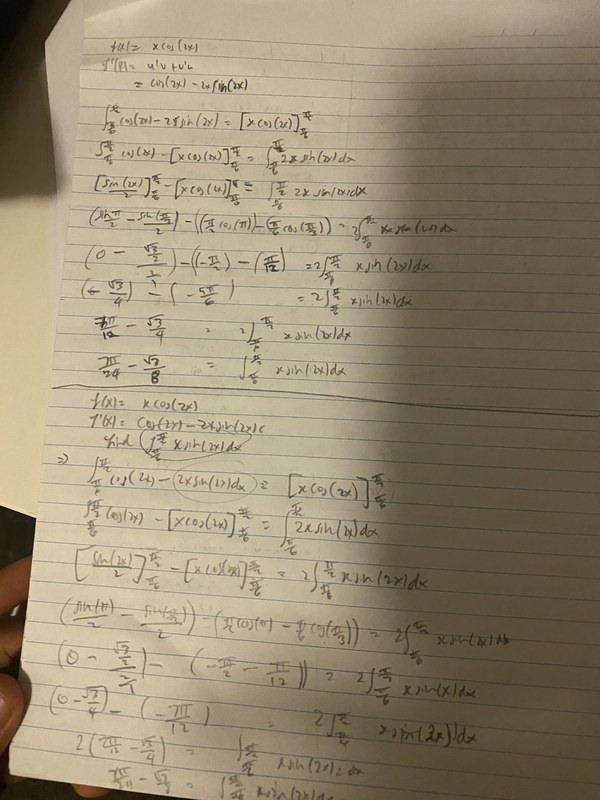 f(x) = x cos(2x)
f'(x) = u'v + v'u
= cos(2x) - 2x sin(2x)
∫_{π/6}^{π/2} cos(2x) - 2x sin(2x) = [x cos(2x)]_{π/6}^{π/2}
∫_{π/6}^{π/2} cos(2x) - [x cos(2x)]_{π/6}^{π/2} = ∫_{π/6}^{π/2} 2x sin(2x) dx
[sin(2x)/2]_{π/6}^{π/2} - [x cos(2x)]_{π/6}^{π/2} = ∫_{π/6}^{π/2} 2x sin(2x) dx
(sin π/2 - sin(π/3)/2) - ((π/2 cos(π)) - (π/6 cos(π/3))) = 2∫_{π/6}^{π/2} x sin(2x) dx
(0 - √3/2/2) - (-π/2) - (π/12) = 2∫_{π/6}^{π/2} x sin(2x) dx
(-√3/4) - (-5π/6) = 2∫_{π/6}^{π/2} x sin(2x) dx
7π/12 - √3/4 = 2∫_{π/6}^{π/2} x sin(2x) dx
7π/24 - √3/8 = ∫_{π/6}^{π/2} x sin(2x) dx
f(x) = x cos(2x)
f'(x) = cos(2x) - 2x sin(2x)
find ∫_{π/6}^{π/2} x sin(2x) dx
⇒ ∫_{π/6}^{π/2} cos(2x) - 2x sin(2x) dx = [x cos(2x)]_{π/6}^{π/2}
∫_{π/6}^{π/2} cos(2x) - [x cos(2x)]_{π/6}^{π/2} = ∫_{π/6}^{π/2} 2x sin(2x) dx
[sin(2x)/2]_{π/6}^{π/2} - [x cos(2x)]_{π/6}^{π/2} = 2∫_{π/6}^{π/2} x sin(2x) dx
(sin(π)/2 - sin(π/3)/2) - (π/2 cos(π) - π/6 cos(π/3)) = 2∫_{π/6}^{π/2} x sin(2x) dx
(0 - √3/2/2) - (-π/2 - π/12)) = 2∫_{π/6}^{π/2} x sin(x) dx
(0 - √3/4) - (-7π/12) = 2∫ x sin(2x) dx
2(7π/12 - √3/4) = ∫ x sin(2x) = dx
- √3/8 = ∫ x sin(2x) dx